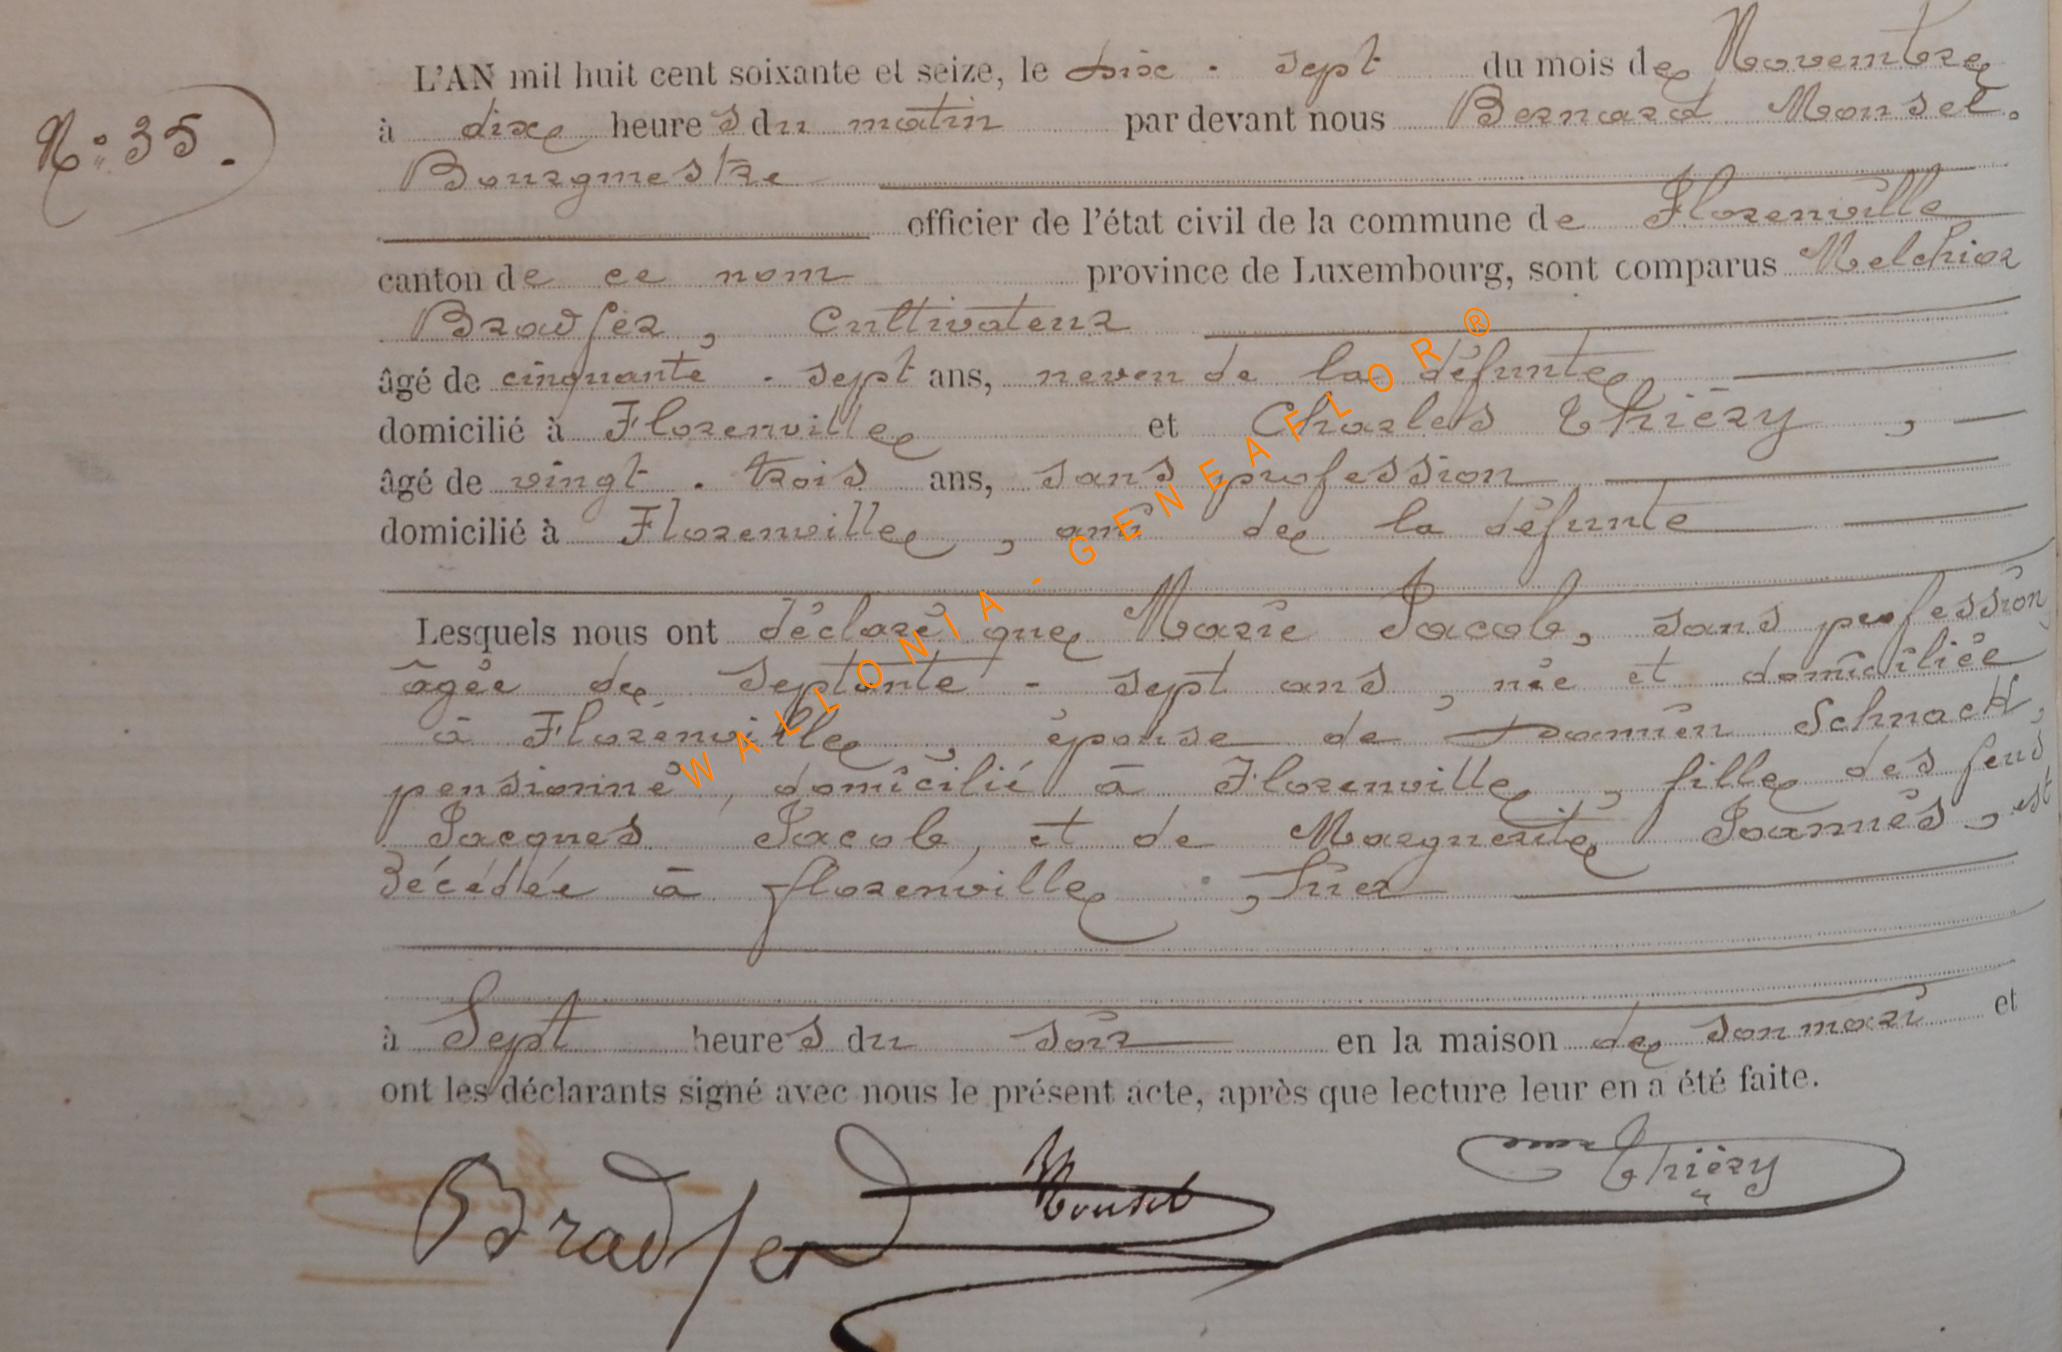 N.º 35.
L'AN mil huit cent soixante et seize, le dix - sept du mois de Novembre
à dix heures du matin par devant nous Bernard Mousel.
Bourgmestre
officier de l'état civil de la commune de Florenville
canton de ce nom province de Luxembourg, sont comparus Melchior
Bradfer, Cultivateur
âgé de cinquante - sept ans, neveu de la défunte
domicilié à Florenville et Charles Thiéry,
âgé de vingt - trois ans, sans profession
domicilié à Florenville, ami de la défunte
Lesquels nous ont déclaré que Marie Jacob, sans profession
âgée de septante - sept ans, née et domiciliée
à Florenville, épouse de Damien Schnack,
pensionné, domicilié à Florenville, fille des feus
Jacques Jacob, et de Marguerite Joannès, est
décédée à florenville, hier
à Sept heures du soir en la maison de son mari et
ont les déclarants signé avec nous le présent acte, après que lecture leur en a été faite.
Bradfer Mousel Thiéry
WALLONIA - GENEAFLOR®